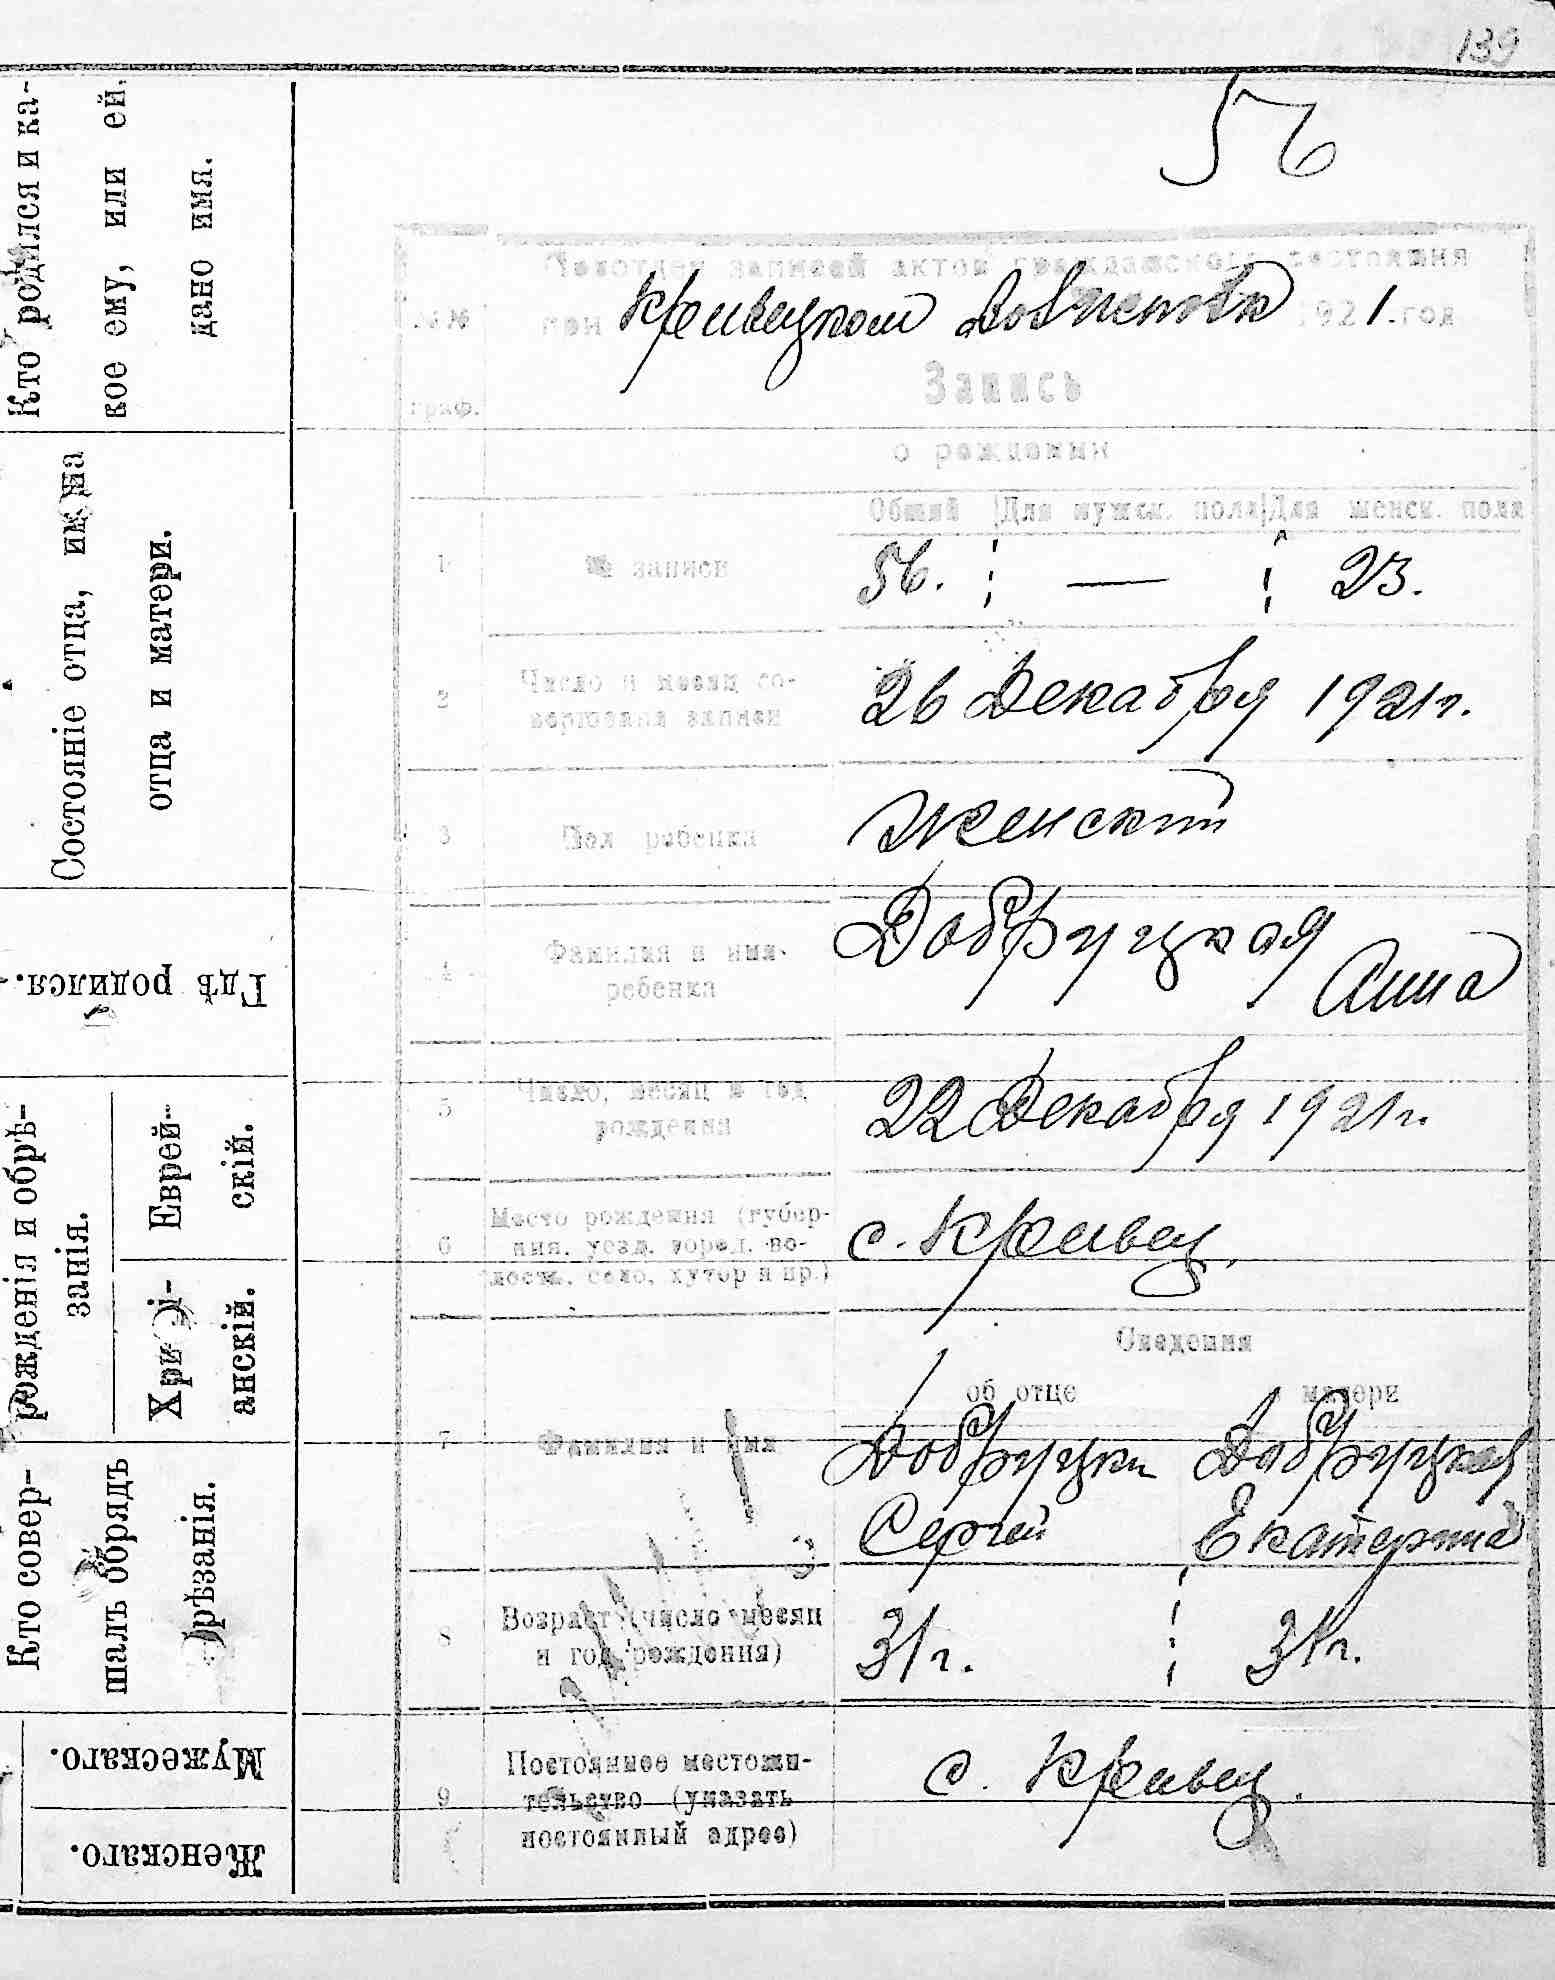 139
56
Кто родился и ка-
кое ему, или ей.
дано имя.
Состояніе отца, имена
отца и матери.
Гдѣ родился.
рожденія и обрѣ-
занія.
Еврей-
скій.
Христі-
анскій.
Кто совер-
шалъ обрядъ
обрѣзанія.
Мужескаго.
Женскаго.
Подотдел записей актов гражданского состояния
№№ при Кривецком 1921.год
Запись
граф.
о рождении
Общий Для мужск. пола Для женск. пола
1 № записи 56. — 23.
2 Число и месяц со-
вершения записи 26 Декабря 1921 г.
3 Пол ребенка Женский
4 Фамилия и имя
ребенка Добруцкая
Анна
5 Число, месяц и год
рождения 22 Декабря 1921 г.
6 Место рождения (губер-
ния, уезд, город, во-
лость, село, хутор и пр.) с. Кривец.
Сведения
об отце матери
7 Фамилия и имя Добруцки Добруцкая
Сергей Екатерина
8 Возраст (число месяц
и год рождения) 31 г. 31 г.
9 Постоянное местожи-
тельство (указать
постоянный адрес) с. Кривец.